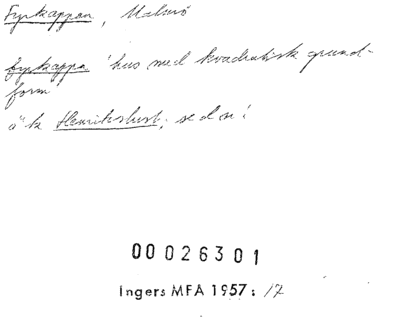 Fyrkappan, Malmö
fyrkappa 'hus med kvadratisk grund-
form'
ä k Henrikslust; se d o!
00026301
Ingers MFA 1957: 17